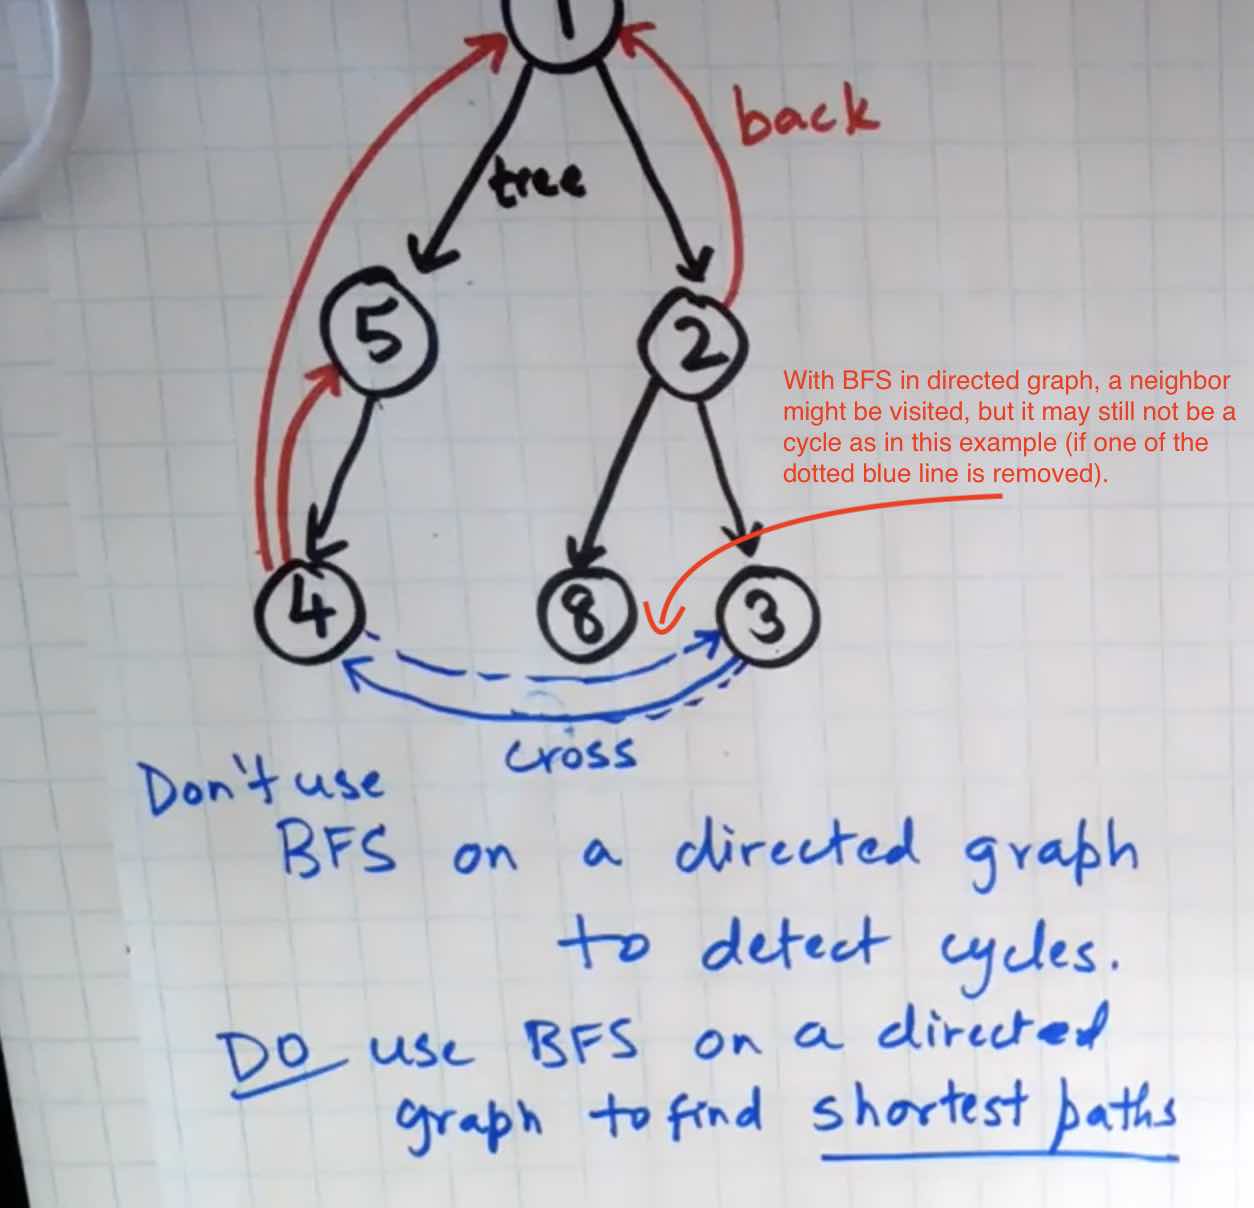 1
back
tree
5
2
With BFS in directed graph, a neighbor
might be visited, but it may still not be a
cycle as in this example (if one of the
dotted blue line is removed).
4
8
3
cross
Don't use
BFS on a directed graph
to detect cycles.
DO use BFS on a directed
graph to find shortest paths